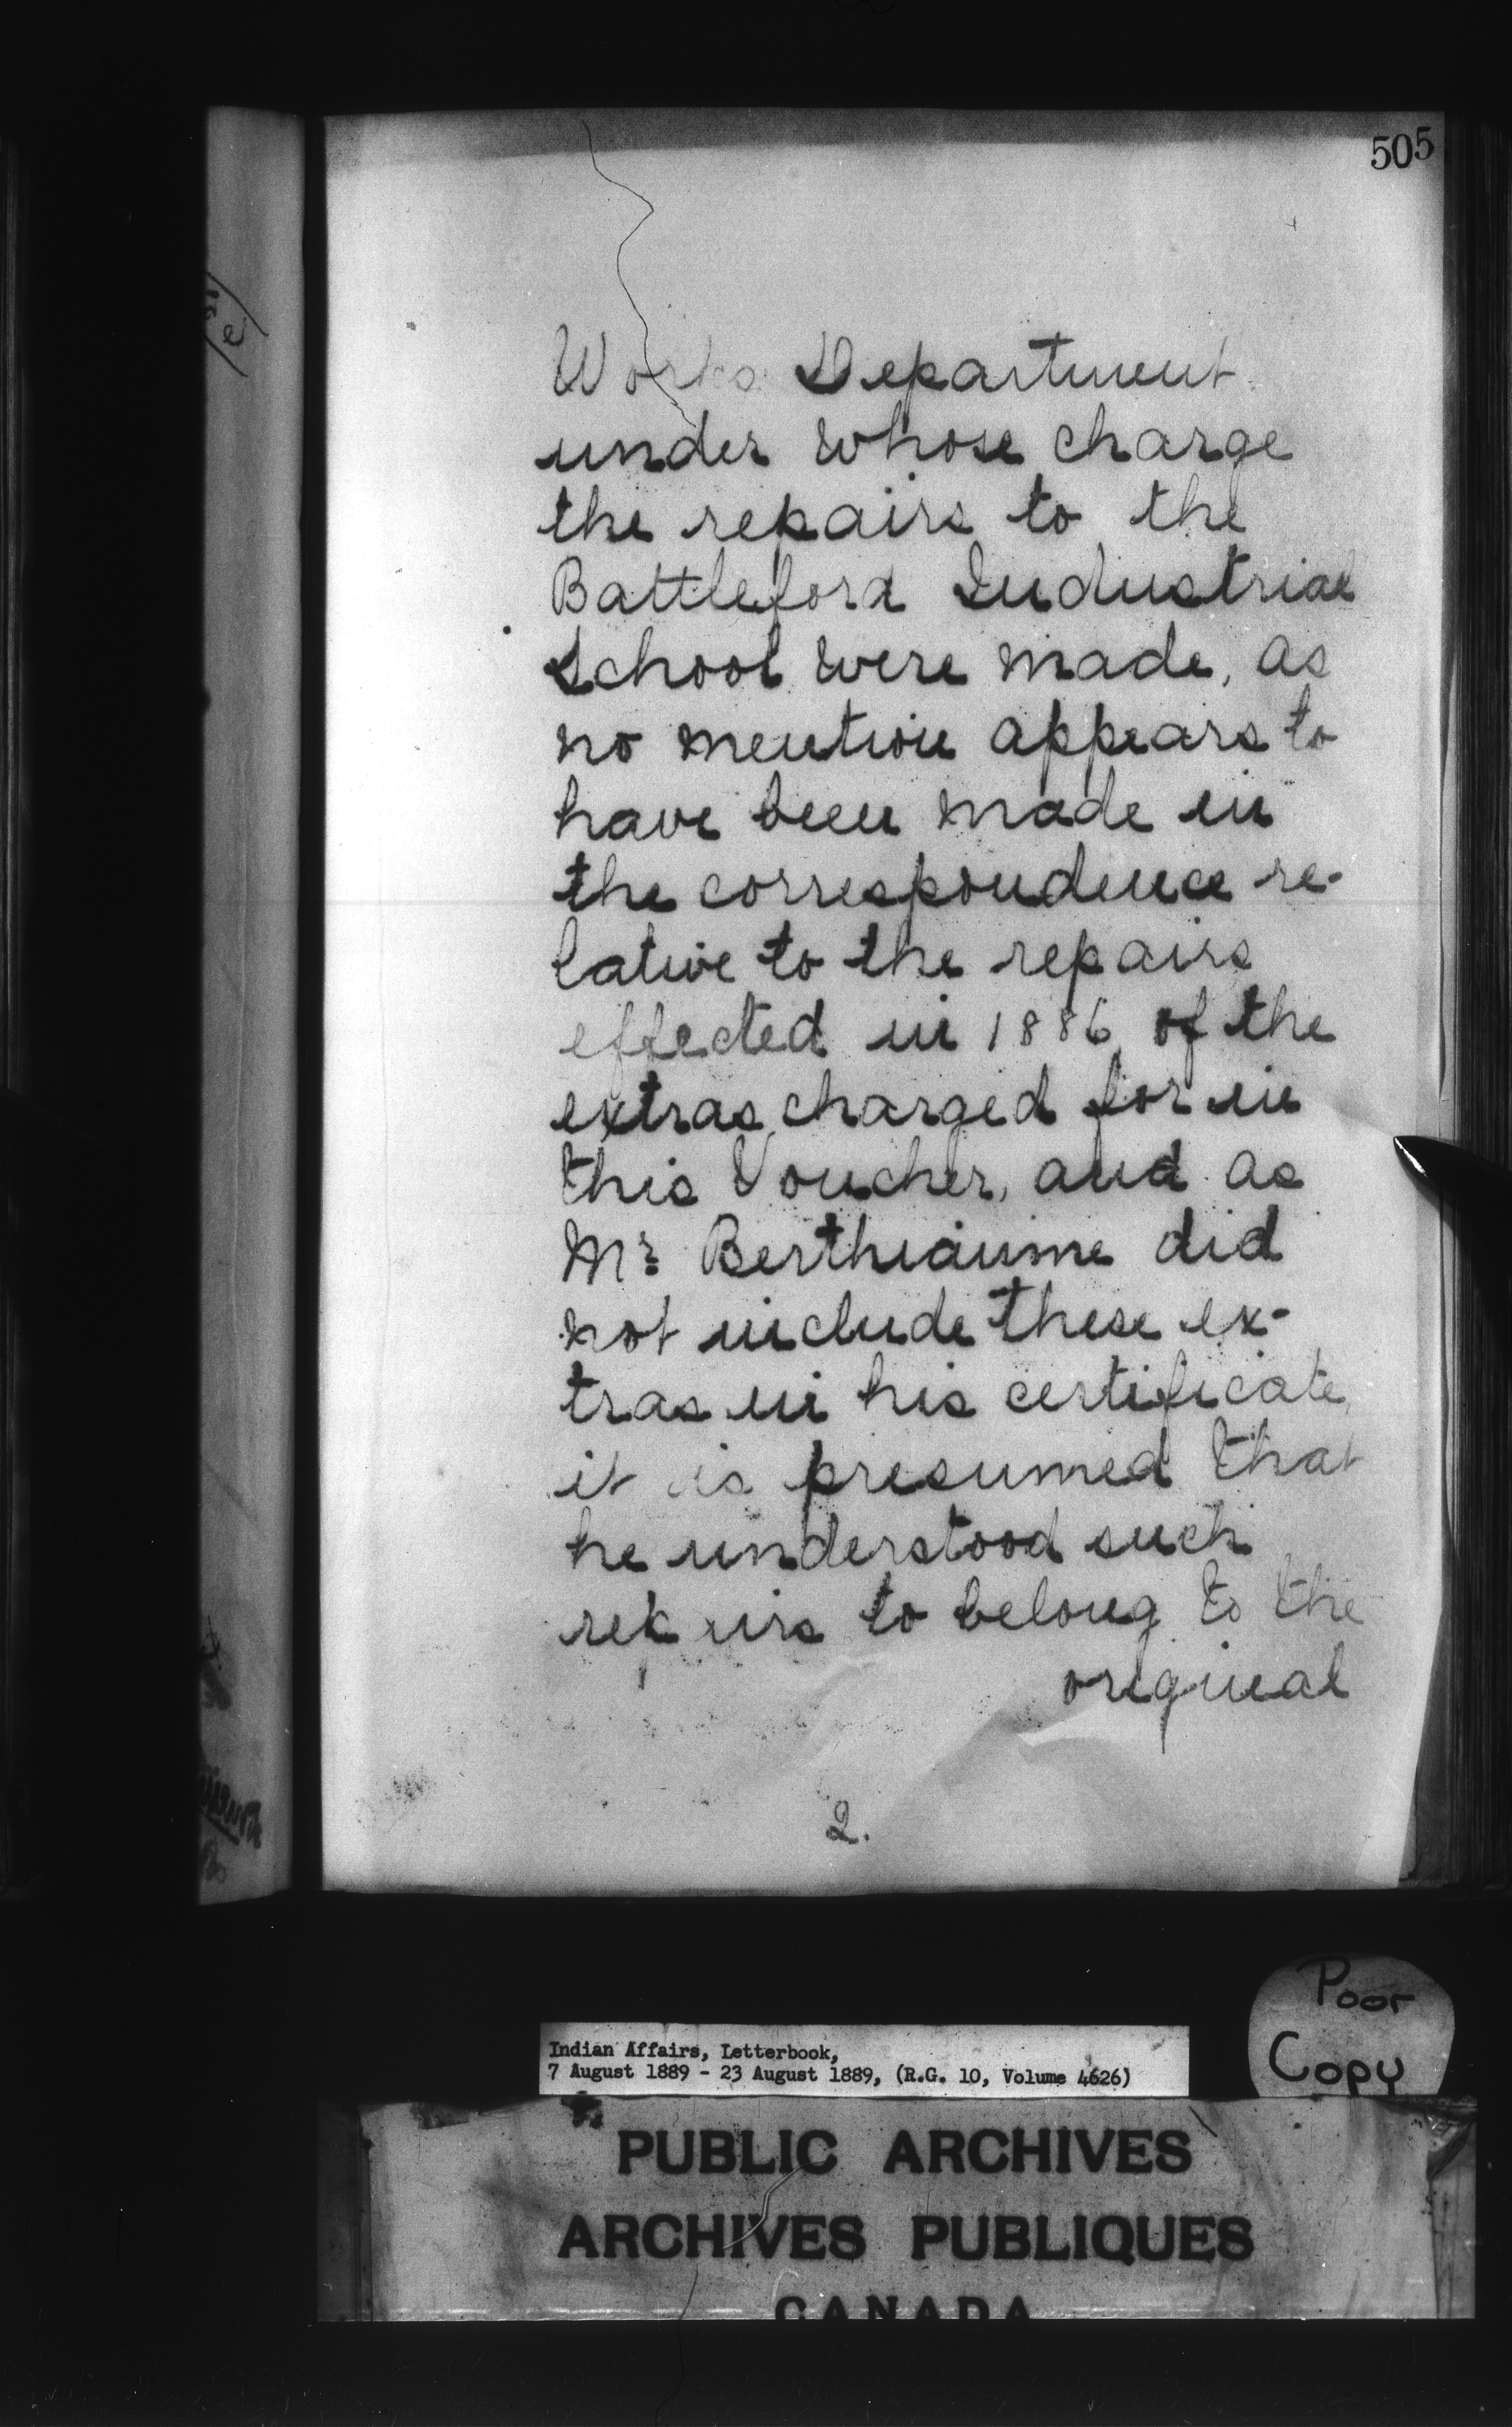 505
Works Department
under whose charge
the repairs to the
Battleford Industrial
School were made, as
no mention appears to
have been made in
the correspondence re-
lative to the repairs
effected in 1886, of the
extras charged for in
this Voucher, and as
Mr. Berthiaume did
not include these ex-
tras in his certificate,
it is presumed that
he understood such
repairs to belong to the
original
2.
Poor
Copy
Indian Affairs, Letterbook,
7 August 1889 - 23 August 1889, (R.G. 10, Volume 4626)
PUBLIC ARCHIVES
ARCHIVES PUBLIQUES
CANADA